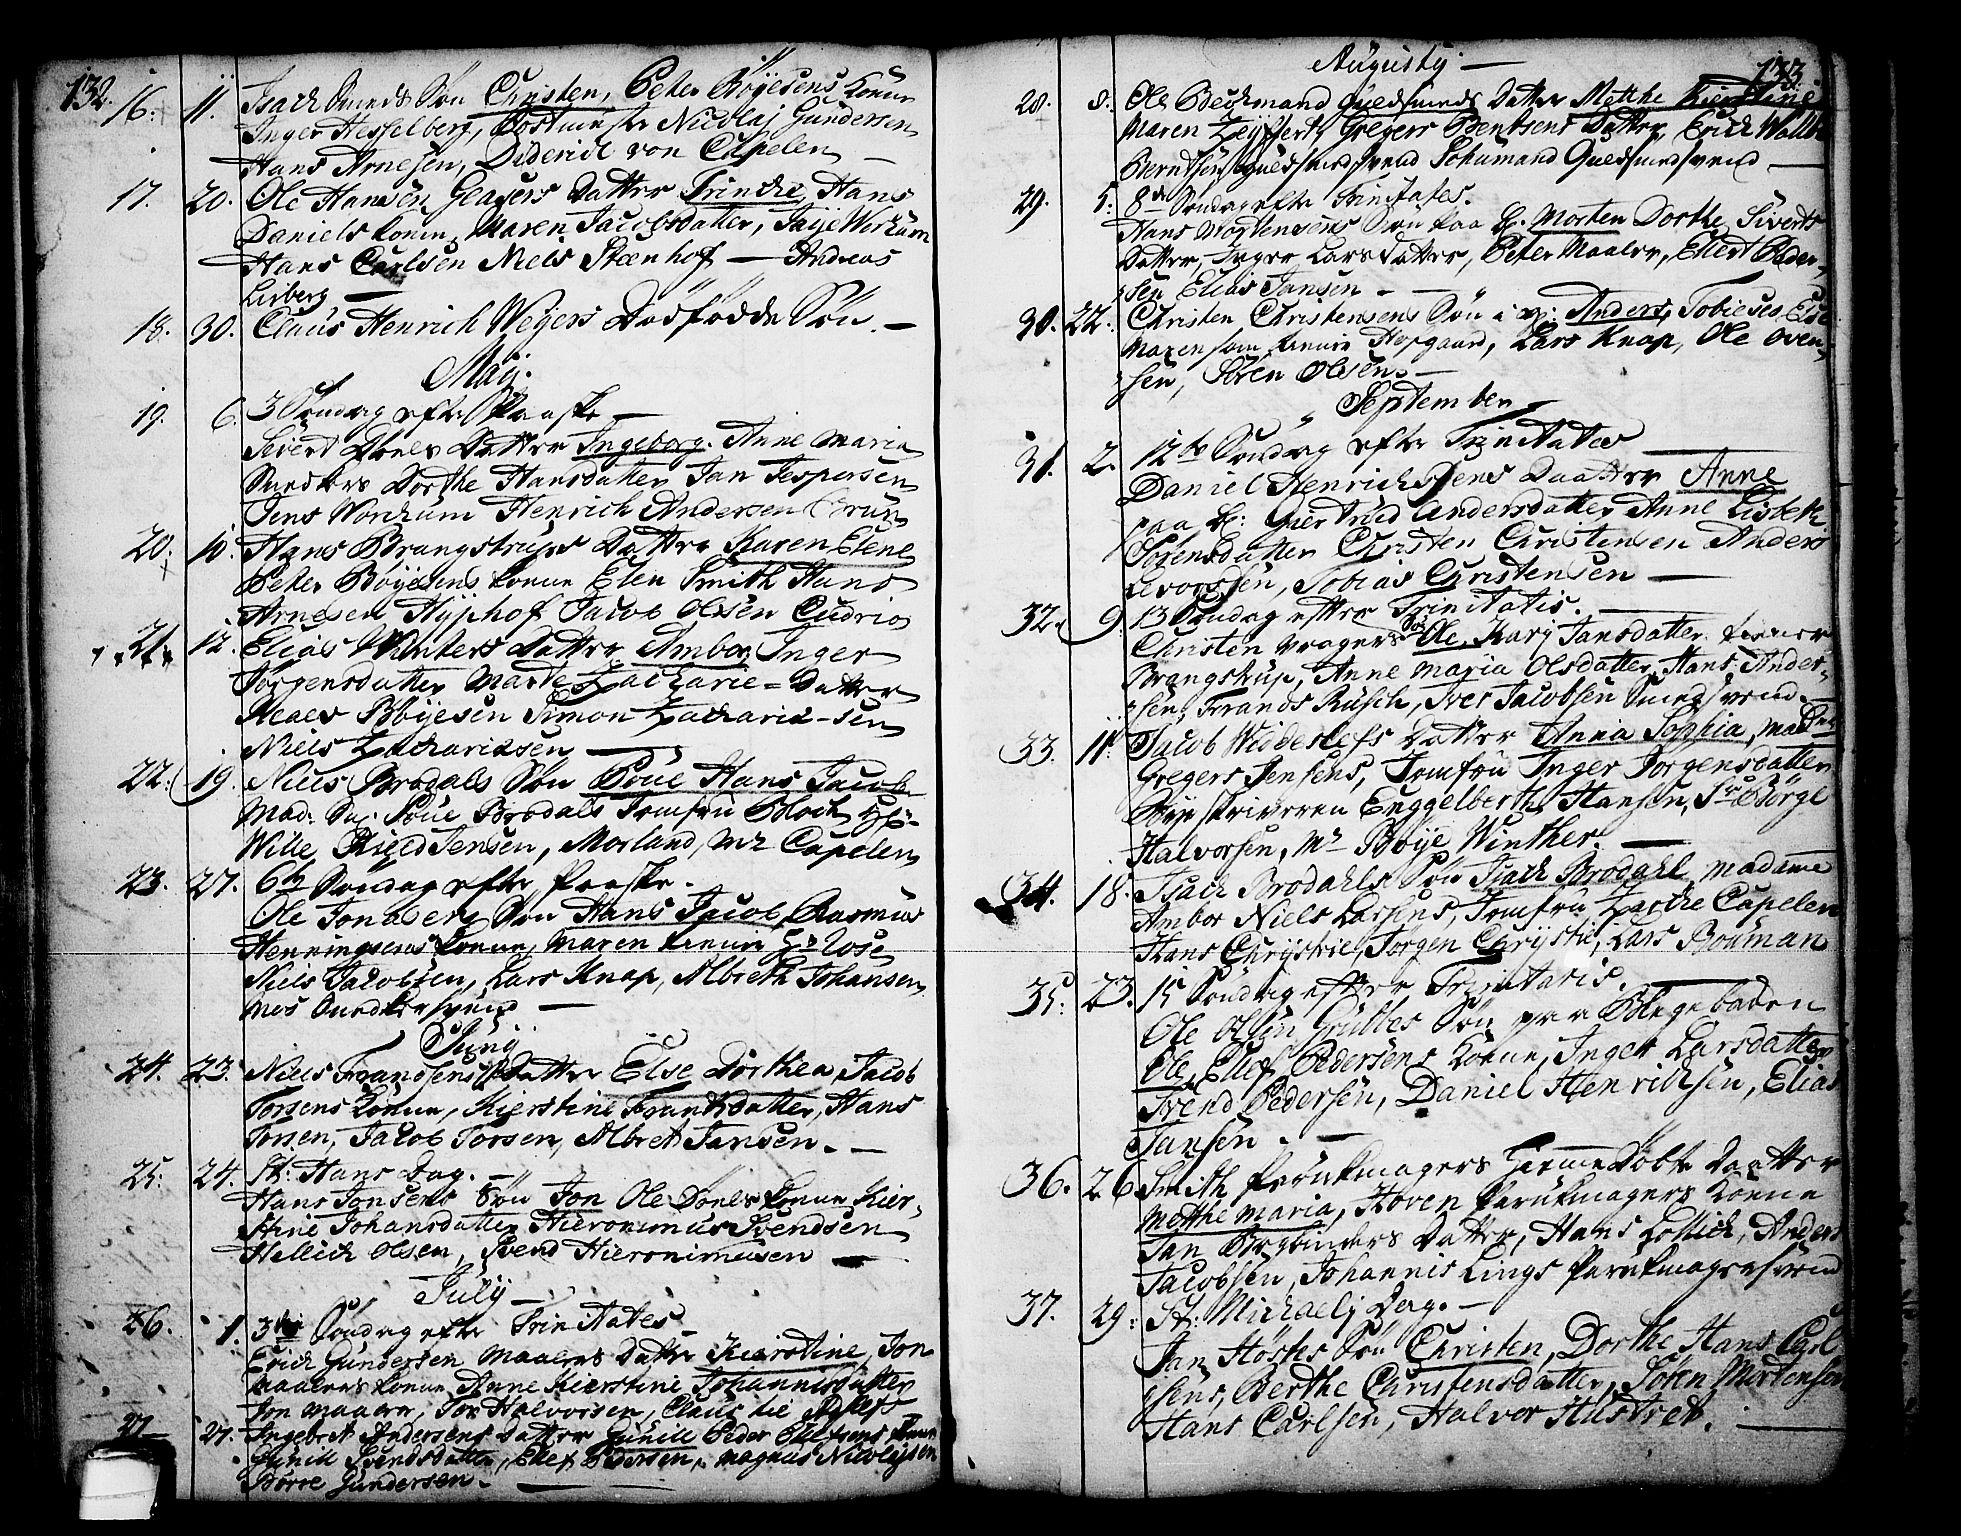 132.
16. 11. Isach Smeds Søn Christen, Peter Bøyesens Konne
Inger Hesselberg, Postmester Nicolaj Gundersen
Hans Arnesen, Diderich von Capelen —
17. 20. Ole Hansen Glasers Datter Trinche, Hans
Daniels Konne, Maren Jacobsdatter, Taije Worhum
Hans Carlsen Niels Steenhof — Andreas
Lisberg —
18. 30. Claus Henrich Weyers Dødfødde Søn. —
Maij.
19. 6. 3 Søndag efter Paaske —
Sivert Datter Ingeborg. Anne Maria
Dorthe Hansdatter Jan Jespersen
Jens Worhum Henrich Andersen Bruun
20. 10. Hans Brangstrups Datter Karen Elene
Peter Bøyesens Konne Elen Smith Hans
Arnesen Hyphof Jacob Olsen Cudrio
21. 12. Elias Winters Datter Ambor, Inger
Jørgensdatter Marte Zacharie = Datter
Claes Bøyesen Simon Zacharia-sen
Niels Zachariesen —
22. 19. Niels Brodals Søn Poue Hans Jacob
Mad: Sal. Poue Brodals Jomfru Bloch
Wille, Kield Jensen, Morland, Mr Capelen
23. 27. 6te Søndag efter Paaske.
Ole Jonsberg Søn Hans Jacob, Rasmus
Henningsens Konne, Maren Rose
Niels Jacobsen, Lars Knap, Albreth Johansen
Mos Snedkersvend —
Junij
24. 23. Niels Frandsens Datter Else Dorthea, Jacob
Torsens Konne, Kierstine Frantzdatter, Hans
Torsen, Jacob Torsen, Albret Jansen. —
25. 24. St: Hans Dag. —
Hans Jonsens Søn Jon Ole Konne Kier-
stine Johansdatter, Hieronimus Svendsen
Hellich Olsen, Svend Hieronimusen —
July —
26. 1. 3die Søndag efter Trinitates
Erich Gundersen Maalers Datter Kierstine, Jon
Maalers Konne, Anne Kierstine Johannisdatter
Jon Maaler, Jon Halvorsen, Claus
27. 27. Ingebret Andersens Datter Gunill Peder Konne
Gunill Svendsdatter, Ellef Pedersen, Magnus Nicolajsen
Børre Gundersen. —
133.
Augusty —
28. 3. Ole Beckmand Guldsmeds Datter Mette Kierstine
Maren Zeyffert, Gregers Bentsens Datter, Erich Wallb
Berntsen Guldsmedsvend Schumand Guldsmedsvend —
29. 5. 8de Søndag efter Trinitates.
Hans Mortensens Søn paa B. Morten Dorthe Siverts
Datter, Inger Larsdatter, Peter Maaler, Ellert Peder-
sen Elias Jansen —
30. 22. Christen Christensens Søn Anders, Tobieses
Maren Hofgaard, Lars Knap, Ole Oven-
sen, Søren Olsen. —
September
31. 2. 12te Søndag efter Trinitates
Daniel Henrichsens Daatter Anne
paa B: Giertrud Andersdatter Anne Lisbeth
Sørensdatter Christen Christensen Anders
Levorsen, Tobias Christensen —
32. 9. 13 Søndag efter Trinitatis. —
Christen Vragers Søn Ole. Kary Jansdatter
Brangstrup, Anne Maria Olsdatter, Hans Ander-
sen, Frands Rusch, Iver Jacobsen Smedsvend. —
33. 11. Jacob Widdeslefs Datter Anna Sophia, Madme
Gregers Jensens, Jomfru Inger Jørgensdatter
Byeskriveren Enggelberth Hansen, Sr Børge
Halvorsen, Mr Bøye Winther. —
34. 18. Isach Brodahls Søn Isach Brodahl Madame
Ambor Niels Larsens, Jomfru Zartke Capelen
Hans Chrystie, Jørgen Chrystie, Lars Bouman
35. 23. 15 Søndag efter Trinitatis.
Ole Olsen Grubbes Søn paa Blegebacken
Ole, Ellef Pedersens Konne, Inger Larsdatter
Svend Pedersen, Daniel Henrichsen, Elias
Jansen. —
36. 26. Smith Perukmagers Hiemmedøbte Daatter
Metthe Maria, Hoven Perukmagers Konne
Jan Bogbinders Datter, Hans Lollich, Anders
Jacobsen, Johannis Lings Perukmagersvend
37. 29. St: Michaelj Dag. —
Jan Høstes Søn Christen, Dorthe Hans Carl
sens, Berthe Christensdatter, Søren Mortensen
Hans Carlsen, Halvor Hustret. —